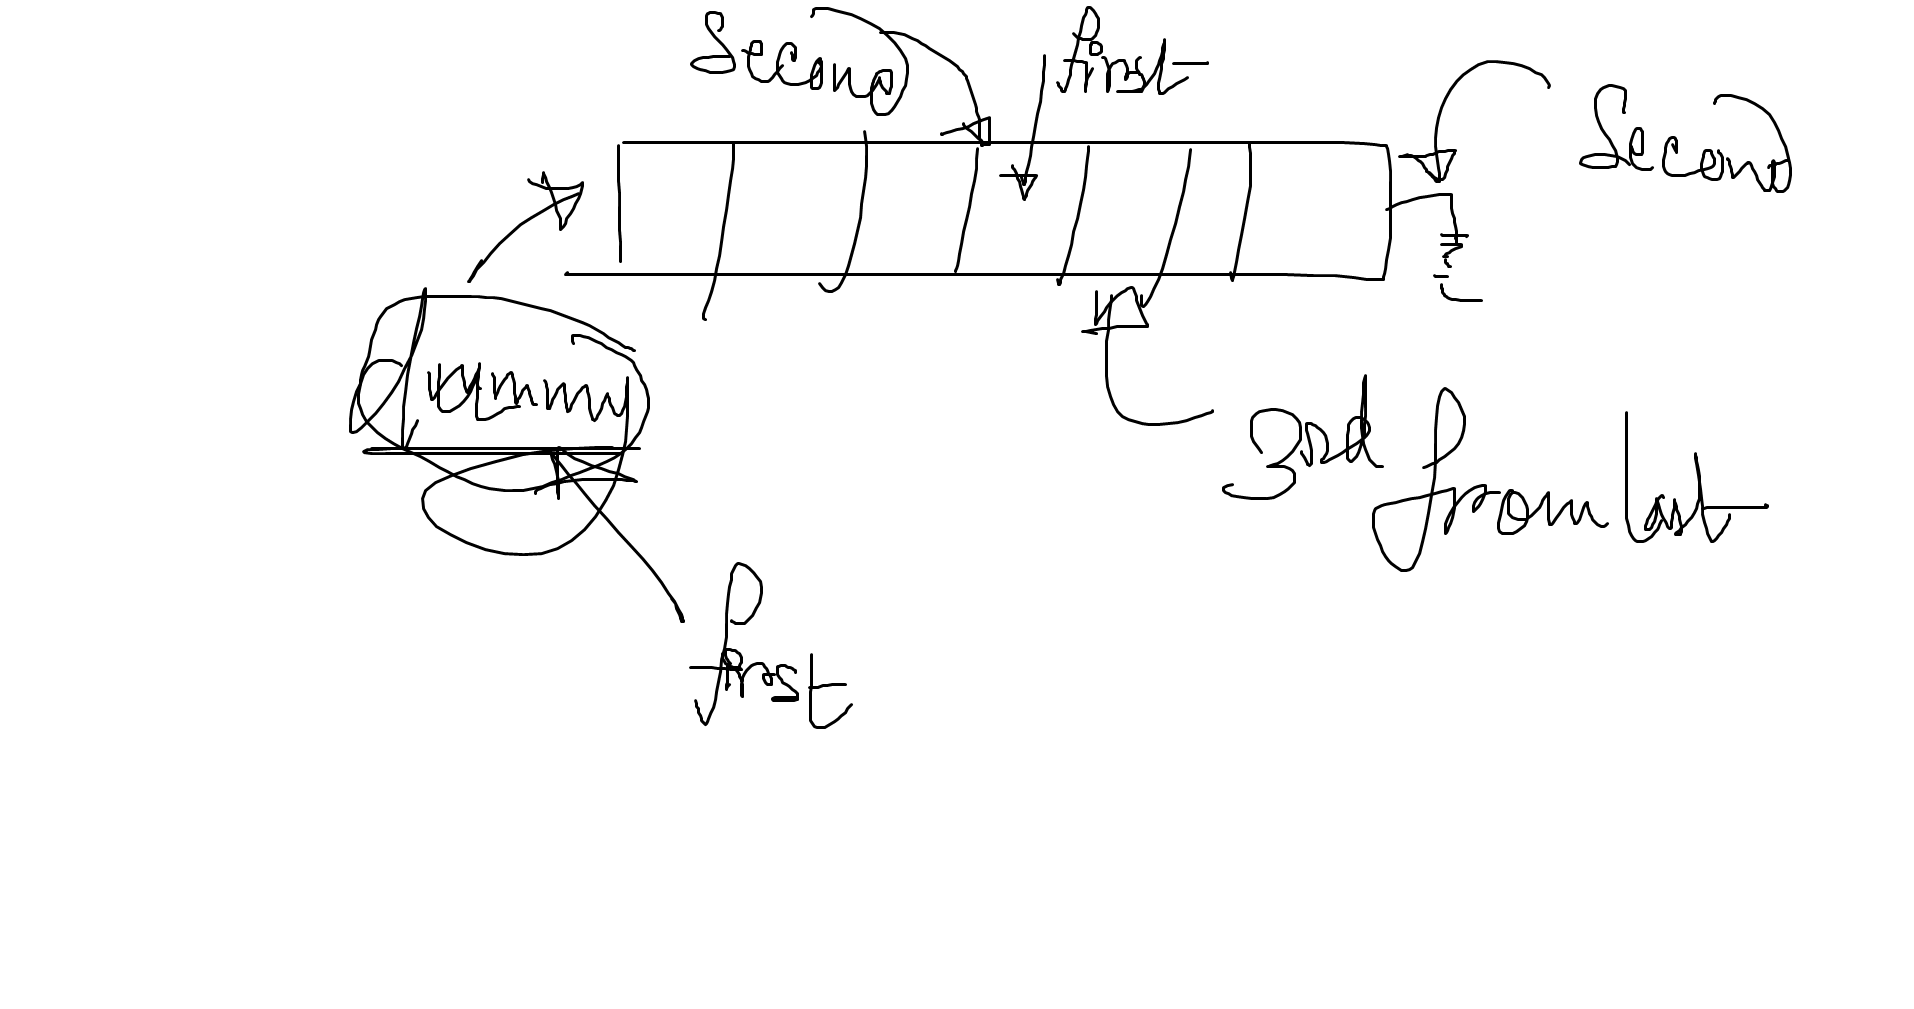 Second
first
Second
dummy
3rd
from last
first